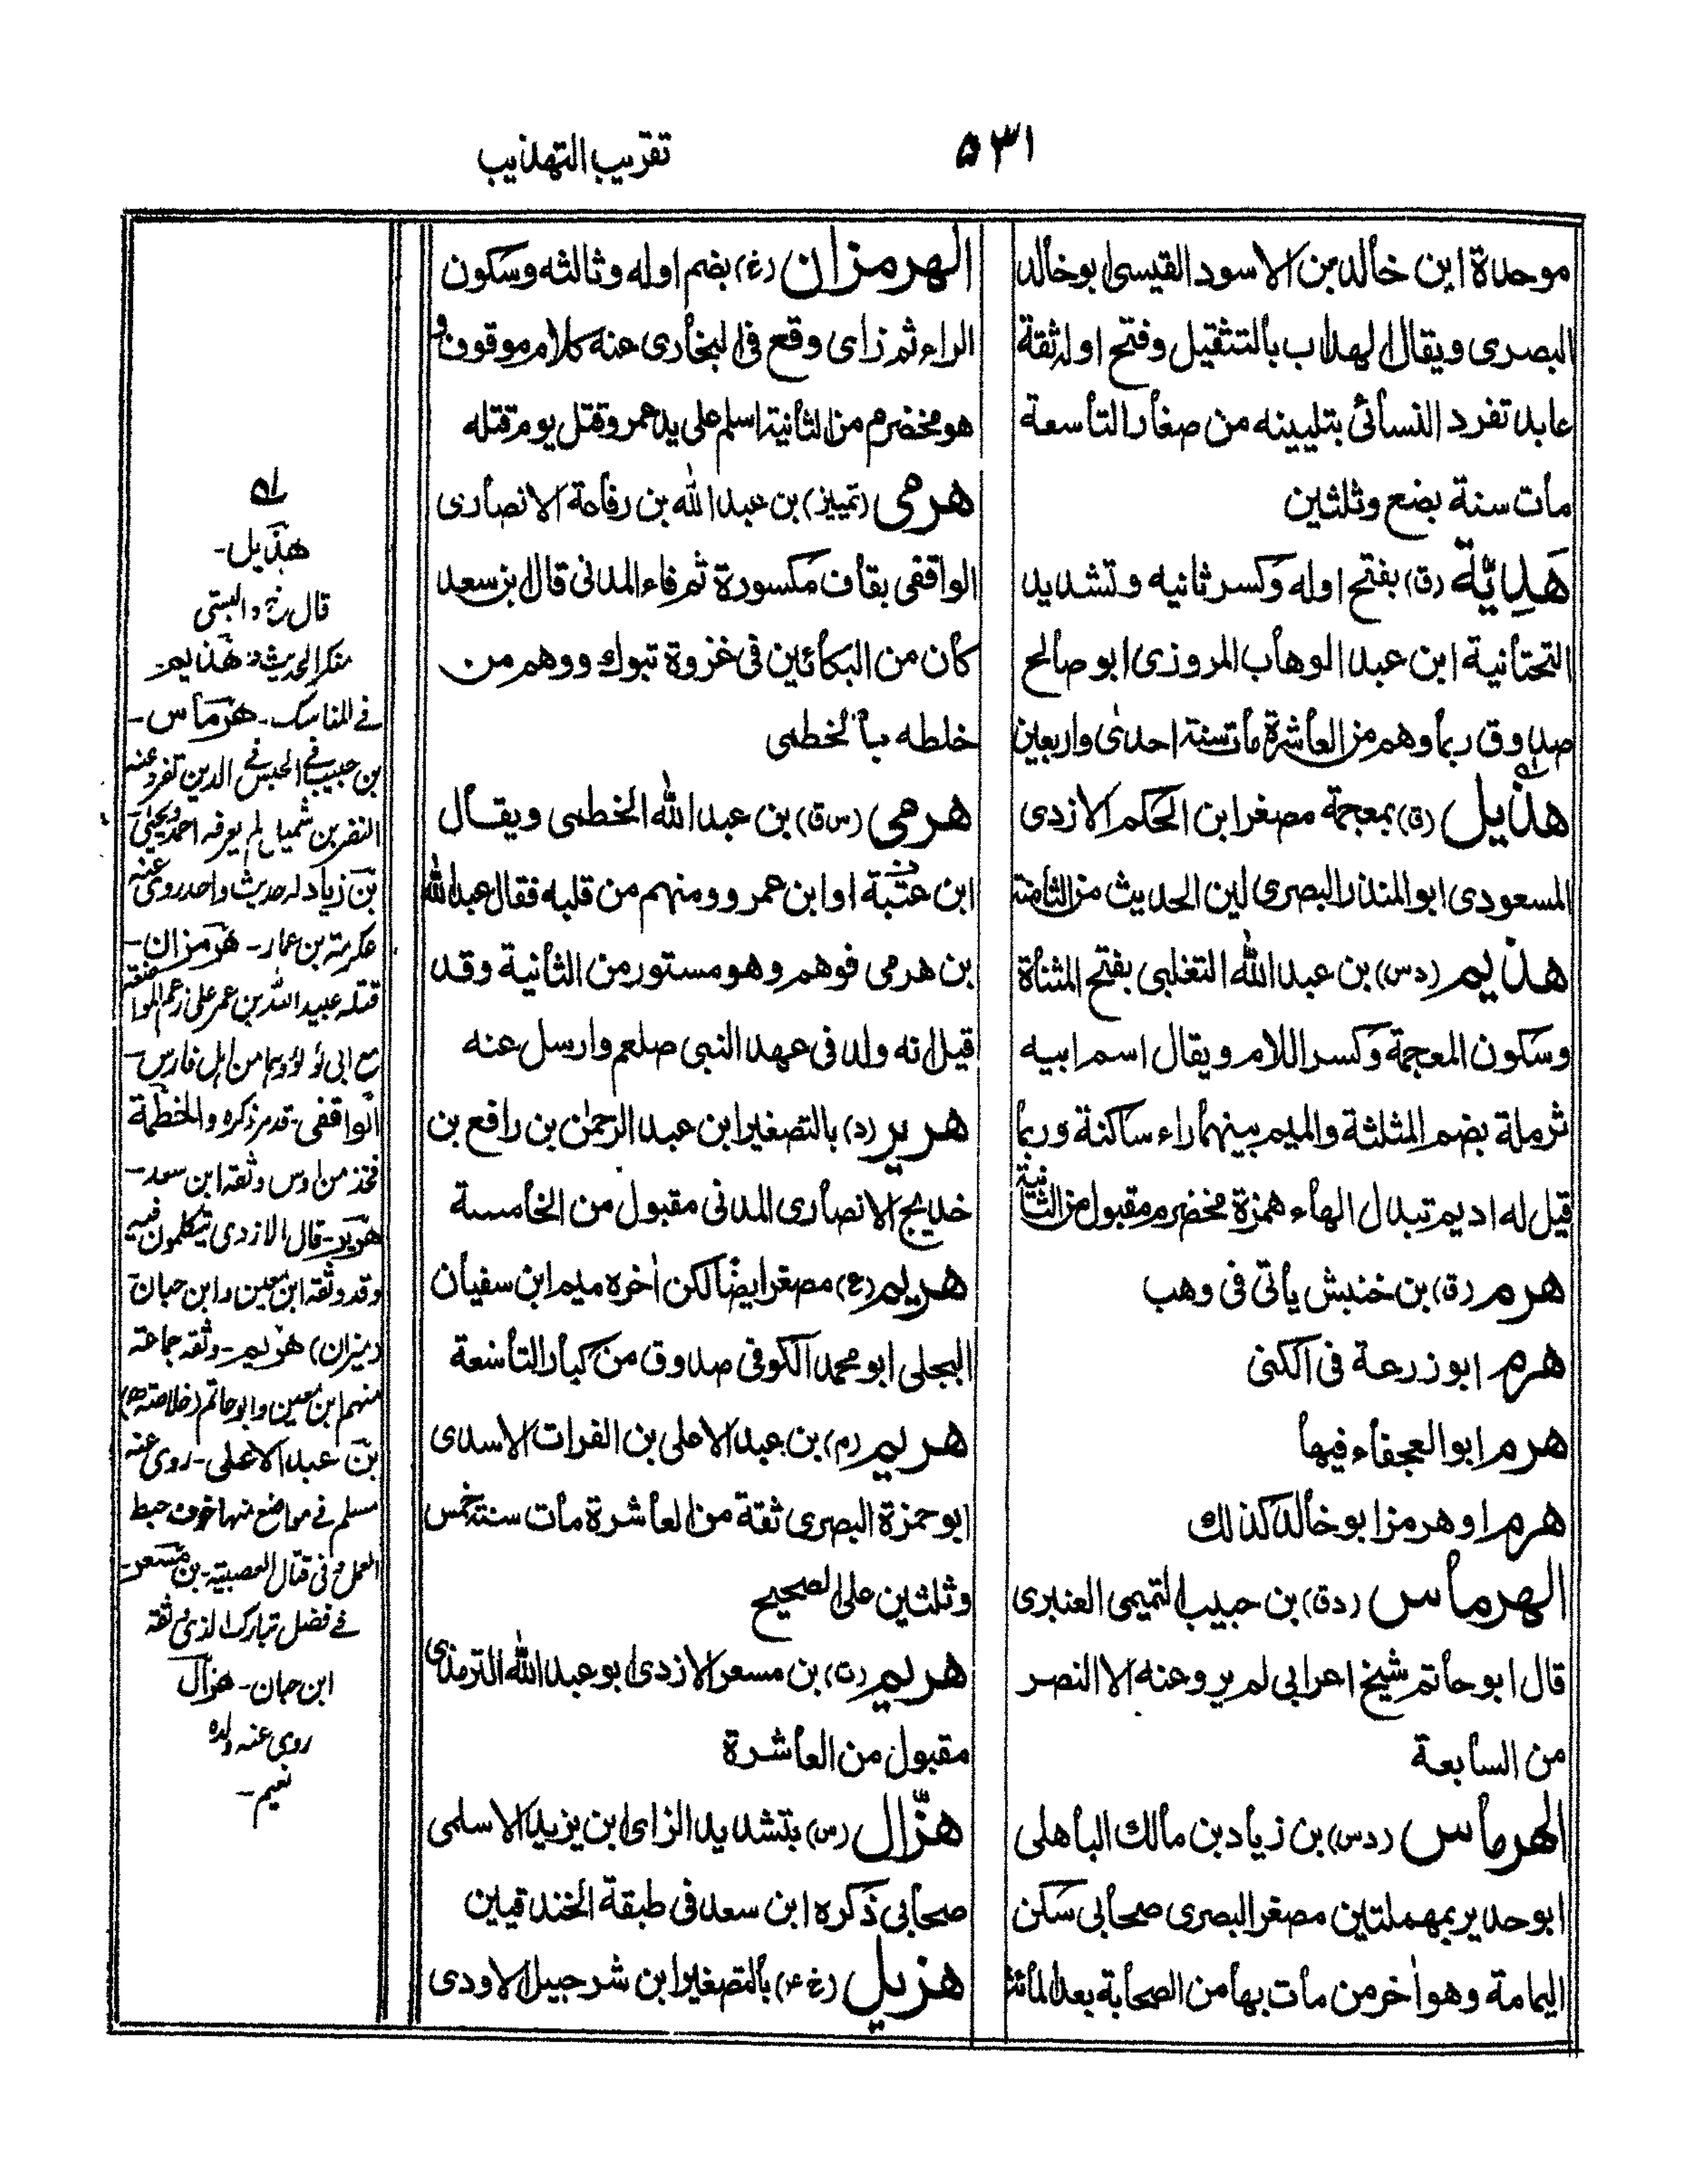 تقريب التهذيب
٥٣١
موحدة ابن خالد بن الاسود القيسى ابو خالد
البصرى ويقال له هداب بالتثقيل وفتح اوله ثقة
عابد تفرد النسائى بتليينه من صغار التاسعة
مات سنة بضع وثلثين
هَدِيَّة (ق) بفتح اوله وكسر ثانيه وتشديد
التحتانية ابن عبد الوهاب المروزى ابو صالح
صدوق ربما وهم من العاشرة مات سنة احدى واربعين
هذيل (ق) بمعجمة مصغرا بن الحكم الازدى
المسعودى ابو المنذر البصرى لين الحديث من الثامنة
هذيم (دس) بن عبد الله التغلبى بفتح المثناة
وسكون المعجمة وكسر اللام ويقال اسم ابيه
ثرملة بضم المثلثة والميم بينهما راء ساكنة وربما
قيل له اديم تبدل الهاء همزة مخضرم مقبول من الثانية
هرم (ق) بن خنبش يأتى فى وهب
هرم ابو زرعة فى الكنى
هرم ابو العجفاء فيها
هرم او هرمز ابو خالد كذلك
الهرماس (دق) بن حبيب التميمى العنبرى
قال ابو حاتم شيخ اعرابى لم يرو عنه الا النصر
من السابعة
الهرماس (دس) بن زياد بن مالك الباهلى
ابو حدير بمهملتين مصغر البصرى صحابى سكن
اليمامة وهو اٰخر من مات بها من الصحابة بعد المائة
الهرمزان (خ) بضم اوله وثالثه وسكون
الراء ثم زاى وقع فى البخارى عنه كلام موقوف و
هو مخضرم من الثانية اسلم على يد عمر وقتل يوم قتله
هرمى (تمييز) بن عبد الله بن رفاعة الانصارى
الواقفى بقاف مكسورة ثم فاء المدنى قال ابن سعد
كان من البكائين فى غزوة تبوك ووهم من
خلطه بالخطمى
هرمى (س ق) بن عبد الله الخطمى ويقال
ابن عتبة او ابن عمرو ومنهم من قلبه فقال عبد الله
بن هرمى فوهم وهو مستور من الثانية وقد
قيل انه ولد فى عهد النبى صلعم وارسل عنه
هرير (د) بالتصغير ابن عبد الرحمٰن بن رافع بن
خديج الانصارى المدنى مقبول من الخامسة
هريم (ع) مصغر ايضًا لكن اٰخره ميم ابن سفيان
البجلى ابو محمد الكوفى صدوق من كبار التاسعة
هريم (م) بن عبد الاعلى بن الفرات الاسدى
ابو حمزة البصرى ثقة من العاشرة مات سنة خمس
وثلثين على الصحيح
هريم (ت) بن مسعر الازدى ابو عبد الله الترمذى
مقبول من العاشرة
هزّال (س) بتشديد الزاى ابن يزيد الاسلمى
صحابى ذكره ابن سعد فى طبقة الخندقيين
هزيل (خ ع) بالتصغير ابن شرحبيل الاودى
هذيل-
قال والبستى
منكر الحديث: هذيم-
فى المناسك- هرماس-
بن حبيب فى الحبس فى الدين تفرد عنه
النضر بن شميل لم يعرفه احمد ويحيى-
بن زياد له حديث واحد روى عنه
عكرمة بن عمار- هرمزان-
قتله عبيد الله بن عمر على زعم الموافقة
مع ابى لؤلؤ وهما من اهل فارس-
الواقفى- قد مر ذكره والخطمة
فخذ من اوس وثقه ابن سعد-
هرير- قال الازدى يتكلمون فيه
وقد وثقه ابن معين وابن حبان
(ميزان) هريم- وثقه جماعة
منهم ابن معين وابو حاتم (خلاصة)
بن عبد الاعلى- روى عنه
مسلم فى مواضع منها خوف حبط
العمل وفى قتال العصبية- بن مسعر-
فى فضل تبارك الذى ثقة
ابن حبان- هزال
روى عنه ولده
نعيم-